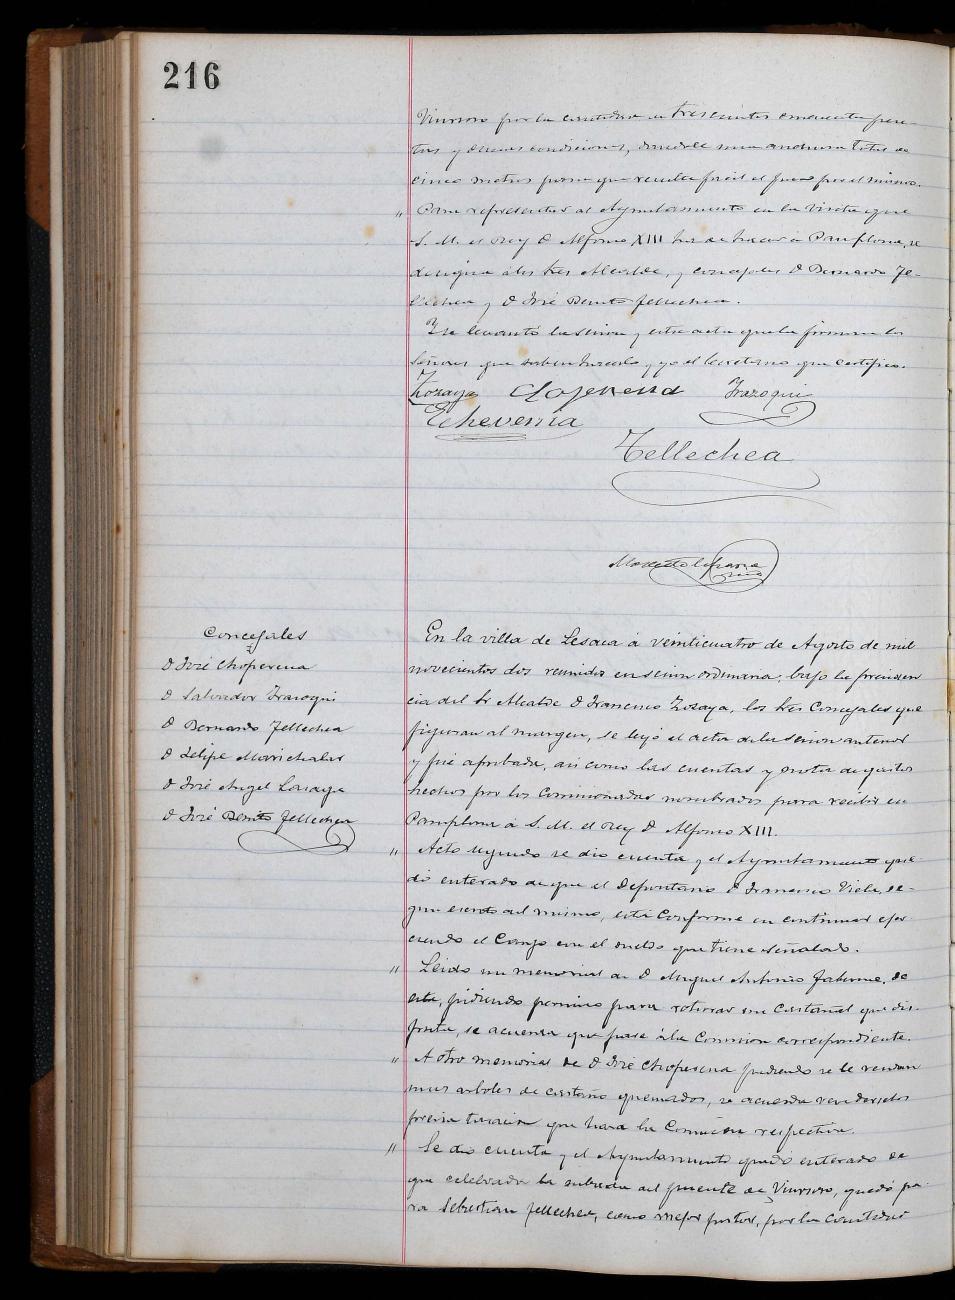 216
Viursoro por la cantidad de trescientas cincuenta pese-
tas y demas condiciones, dandole una anchura total de
cinco metros para que resulte facil el paso por el mismo.
" Para representar al Ayuntamiento en la visita que
S. M. el Rey D Alfonso XIII ha de hacer a Pamplona, se
designa á los Sres Alcalde, y concejales D Bernardo Te-
llechea y D José Benito Tellechea.
Y se levantó la sesion y esta acta que la firman los
Señores que saben hacerlo, y yo el Secretario que certifico.
Zozaya Choperena Irazoqui
Echeverria
Tellechea
Modesto
Concejales
D José Choperena
D Salvador Irazoqui
D Bernardo Tellechea
D Felipe Marichalar
D José Angel
D José Benito Tellechea
En la villa de Lesaca á veinticuatro de Agosto de mil
novecientos dos reunidos en sesion ordinaria, bajo la presiden
cia del Sr Alcalde D Francisco Zozaya, los Sres Concejales que
figuran al margen, se leyó el acta de la sesion anterior
y fué aprobada, asi como las cuentas y nota de gastos
hechos por los Comisionados nombrados para recibir en
Pamplona á S. M. el Rey D Alfonso XIII.
" Acto seguido se dio cuenta y el Ayuntamiento que-
dó enterado de que el Depositario D Francisco, se-
gun escrito del mismo, está conforme en continuar ejer
ciendo el Cargo con el sueldo que tiene señalado.
" Leido un memorial de D Miguel Antonio, de
esta, pidiendo permiso para roturar un Castañal que dis-
fruta, se acuerda que pase á la Comision correspondiente.
" A otro memorial de D José Choperena pidiendo se le vendan
unos arboles de castaño quemados, se acuerda vendersелos
previa tasacion que hará la Comision respectiva.
" Se dio cuenta y el Ayuntamiento quedó enterado de
que celebrada la subasta del puente de Viursoro, quedó pa-
ra Sebastian Tellechea, como mejor postor, por la cantidad